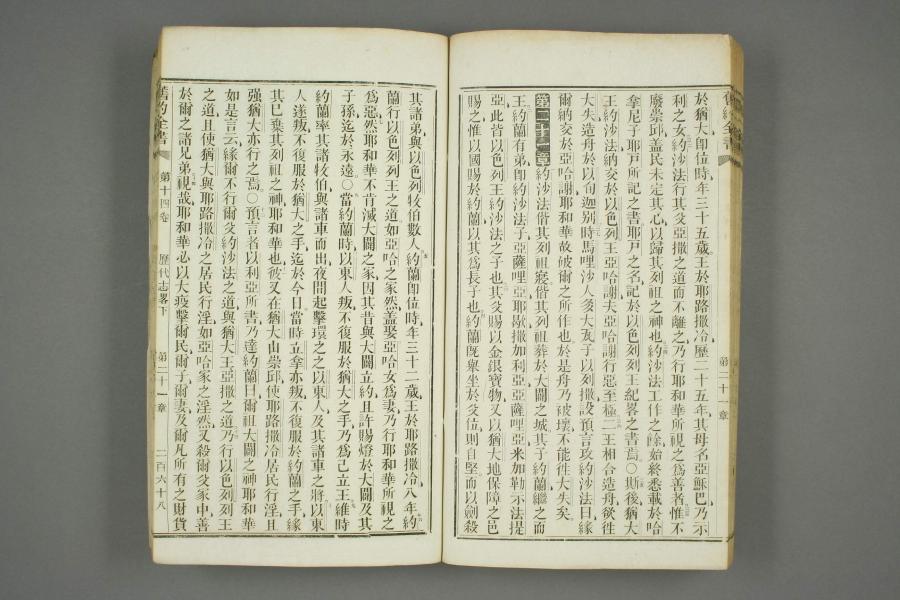 於猶大卽位時年三十五歲王於耶路撒冷歷二十五年其母名亞穌巴乃示
利之女約沙法行其父亞撒之道而不離之乃行耶和華所視之爲善者惟不
廢崇邱蓋民未定其心以歸其列祖之神也約沙法工作之餘始終悉載於哈
拿尼子耶戸所記之書耶戸之名記於以色列列王紀畧之書焉○斯後猶大
王約沙法納交於以色列王亞哈謝夫亞哈謝行惡至極二王相合造舟欲徃
大失造舟於以旬迦別時馬哩沙人多大瓦子以列撒設預言攻約沙法曰緣
爾納交於亞哈謝耶和華故破爾之所作也於是舟乃破壞不能徃大失矣
第二十一章 約沙法偕其列祖寢偕其列祖葬於大闢之城其子約蘭繼之而
王約蘭有弟卽約沙法子亞薩哩亞耶歇撒加利亞亞薩哩亞米加勒示法提
亞此皆以色列王約沙法之子也其父賜以金銀寶物又以猶大地保障之邑
賜之惟以國賜於約蘭以其爲長子也約蘭旣舉坐於父位則自堅而以劍殺
舊約全書
第二十一章
其諸弟與以色列牧伯數人約蘭卽位時年三十二歲王於耶路撒冷八年約
蘭行以色列列王之道如亞哈之家然蓋娶亞哈女爲妻乃行耶和華所視之
爲惡然耶和華不肯滅大闢之家因其昔與大闢立約且許賜燈於大闢及其
子孫迄於永遠○當約蘭時以東人叛不復服於猶大之手乃爲己立王維時
約蘭率其諸牧伯與諸車而出夜間起擊環之之以東人及其諸車之將以東
人遂叛不復服於猶大之手迄於今日當時立拿亦叛不復服於約蘭之手緣
其已棄其列祖之神耶和華也彼又在猶大山崇邱使耶路撒冷居民行淫且
強猶大亦行之焉○預言者以利亞所書乃達約蘭曰爾祖大闢之神耶和華
如是言云緣爾不行爾父約沙法之道與猶大王亞撒之道乃行以色列列王
之道且使猶大與耶路撒冷之居民行淫如亞哈家之淫然又殺爾父家中善
於爾之諸兄弟視哉耶和華必以大疫擊爾民爾子爾妻及爾凡所有之財貨
舊約全書 第十四卷 歷代志畧下 第二十一章 二百六十八